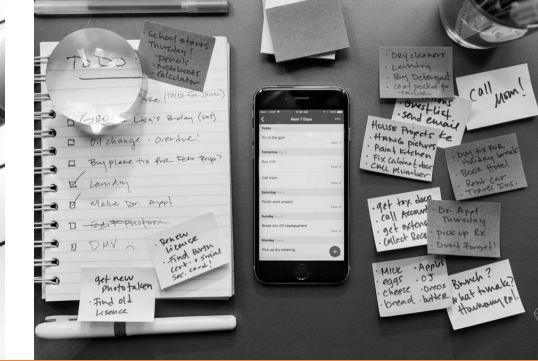 TO DO:
School starts
Thursday!
· Pencils
· Notebooks
· Calculator
Lisa's B-day (Sat)
Oil change - overdue!
Buy plane tix for
Laundry
Make Dr. Appt
DMV
· Renew
License
· Find Birth
Cert. + Social
Sec. card!
· get new
Photo taken
· Find old
Lisence
Next 7 Days
Today
Go to the gym
Tomorrow
Buy milk
Call mom
Saturday
Finish work project
Sunday
Break into SD headquarters
Monday
Pick up dry cleaning
· Dry cleaners
· Laundry
· Buy Detergent
Call
Mom!
Guest List
· send email
House Projects
· Hang pictures
· Paint kitchen
· Fix cabinet door
· Call plumber
· Buy tix for
Holiday
· Book Hotel
· Rent Car
· Travel Ins.
· get tax
· Call Account
· get extens
· Collect Rece
· Dr. Appt.
Thursday
· pick up Rx
Don't Forget!
· Milk
· eggs
· cheese
· bread
· Apples
· OJ
· Oreos
· butter
Brunch?
what to make?
How many ppl?